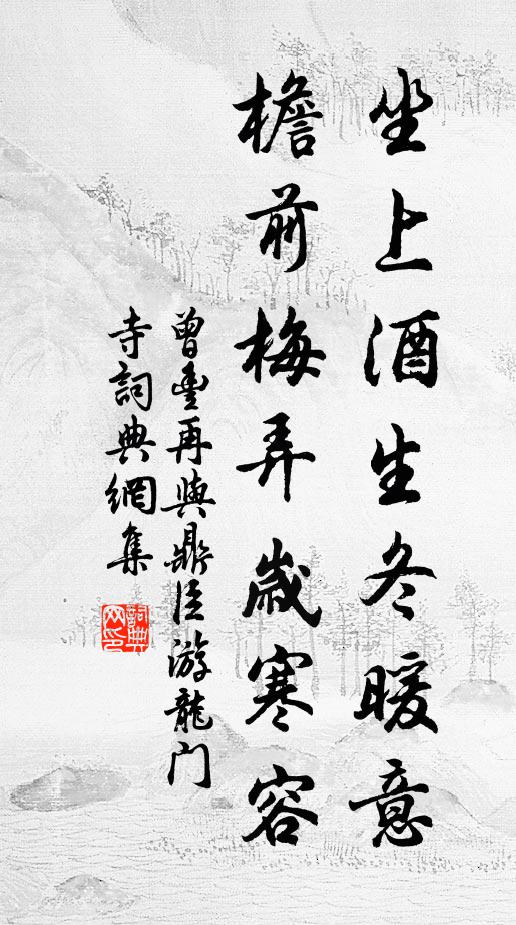 坐上酒生冬暖意
檐前梅弄歲寒容
曾豊再與鼎臣游龍门
寺詞典網集
詞典
网印